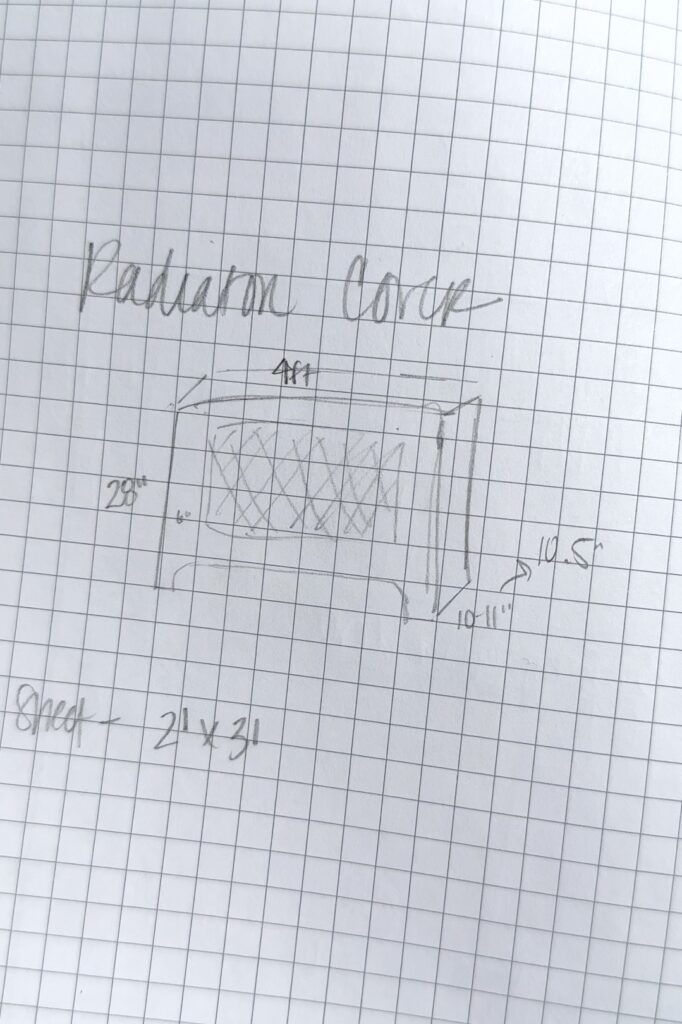 Radiator Cover
4ft
28"
6"
10.5"
10-11"
Sheet - 2' x 3'